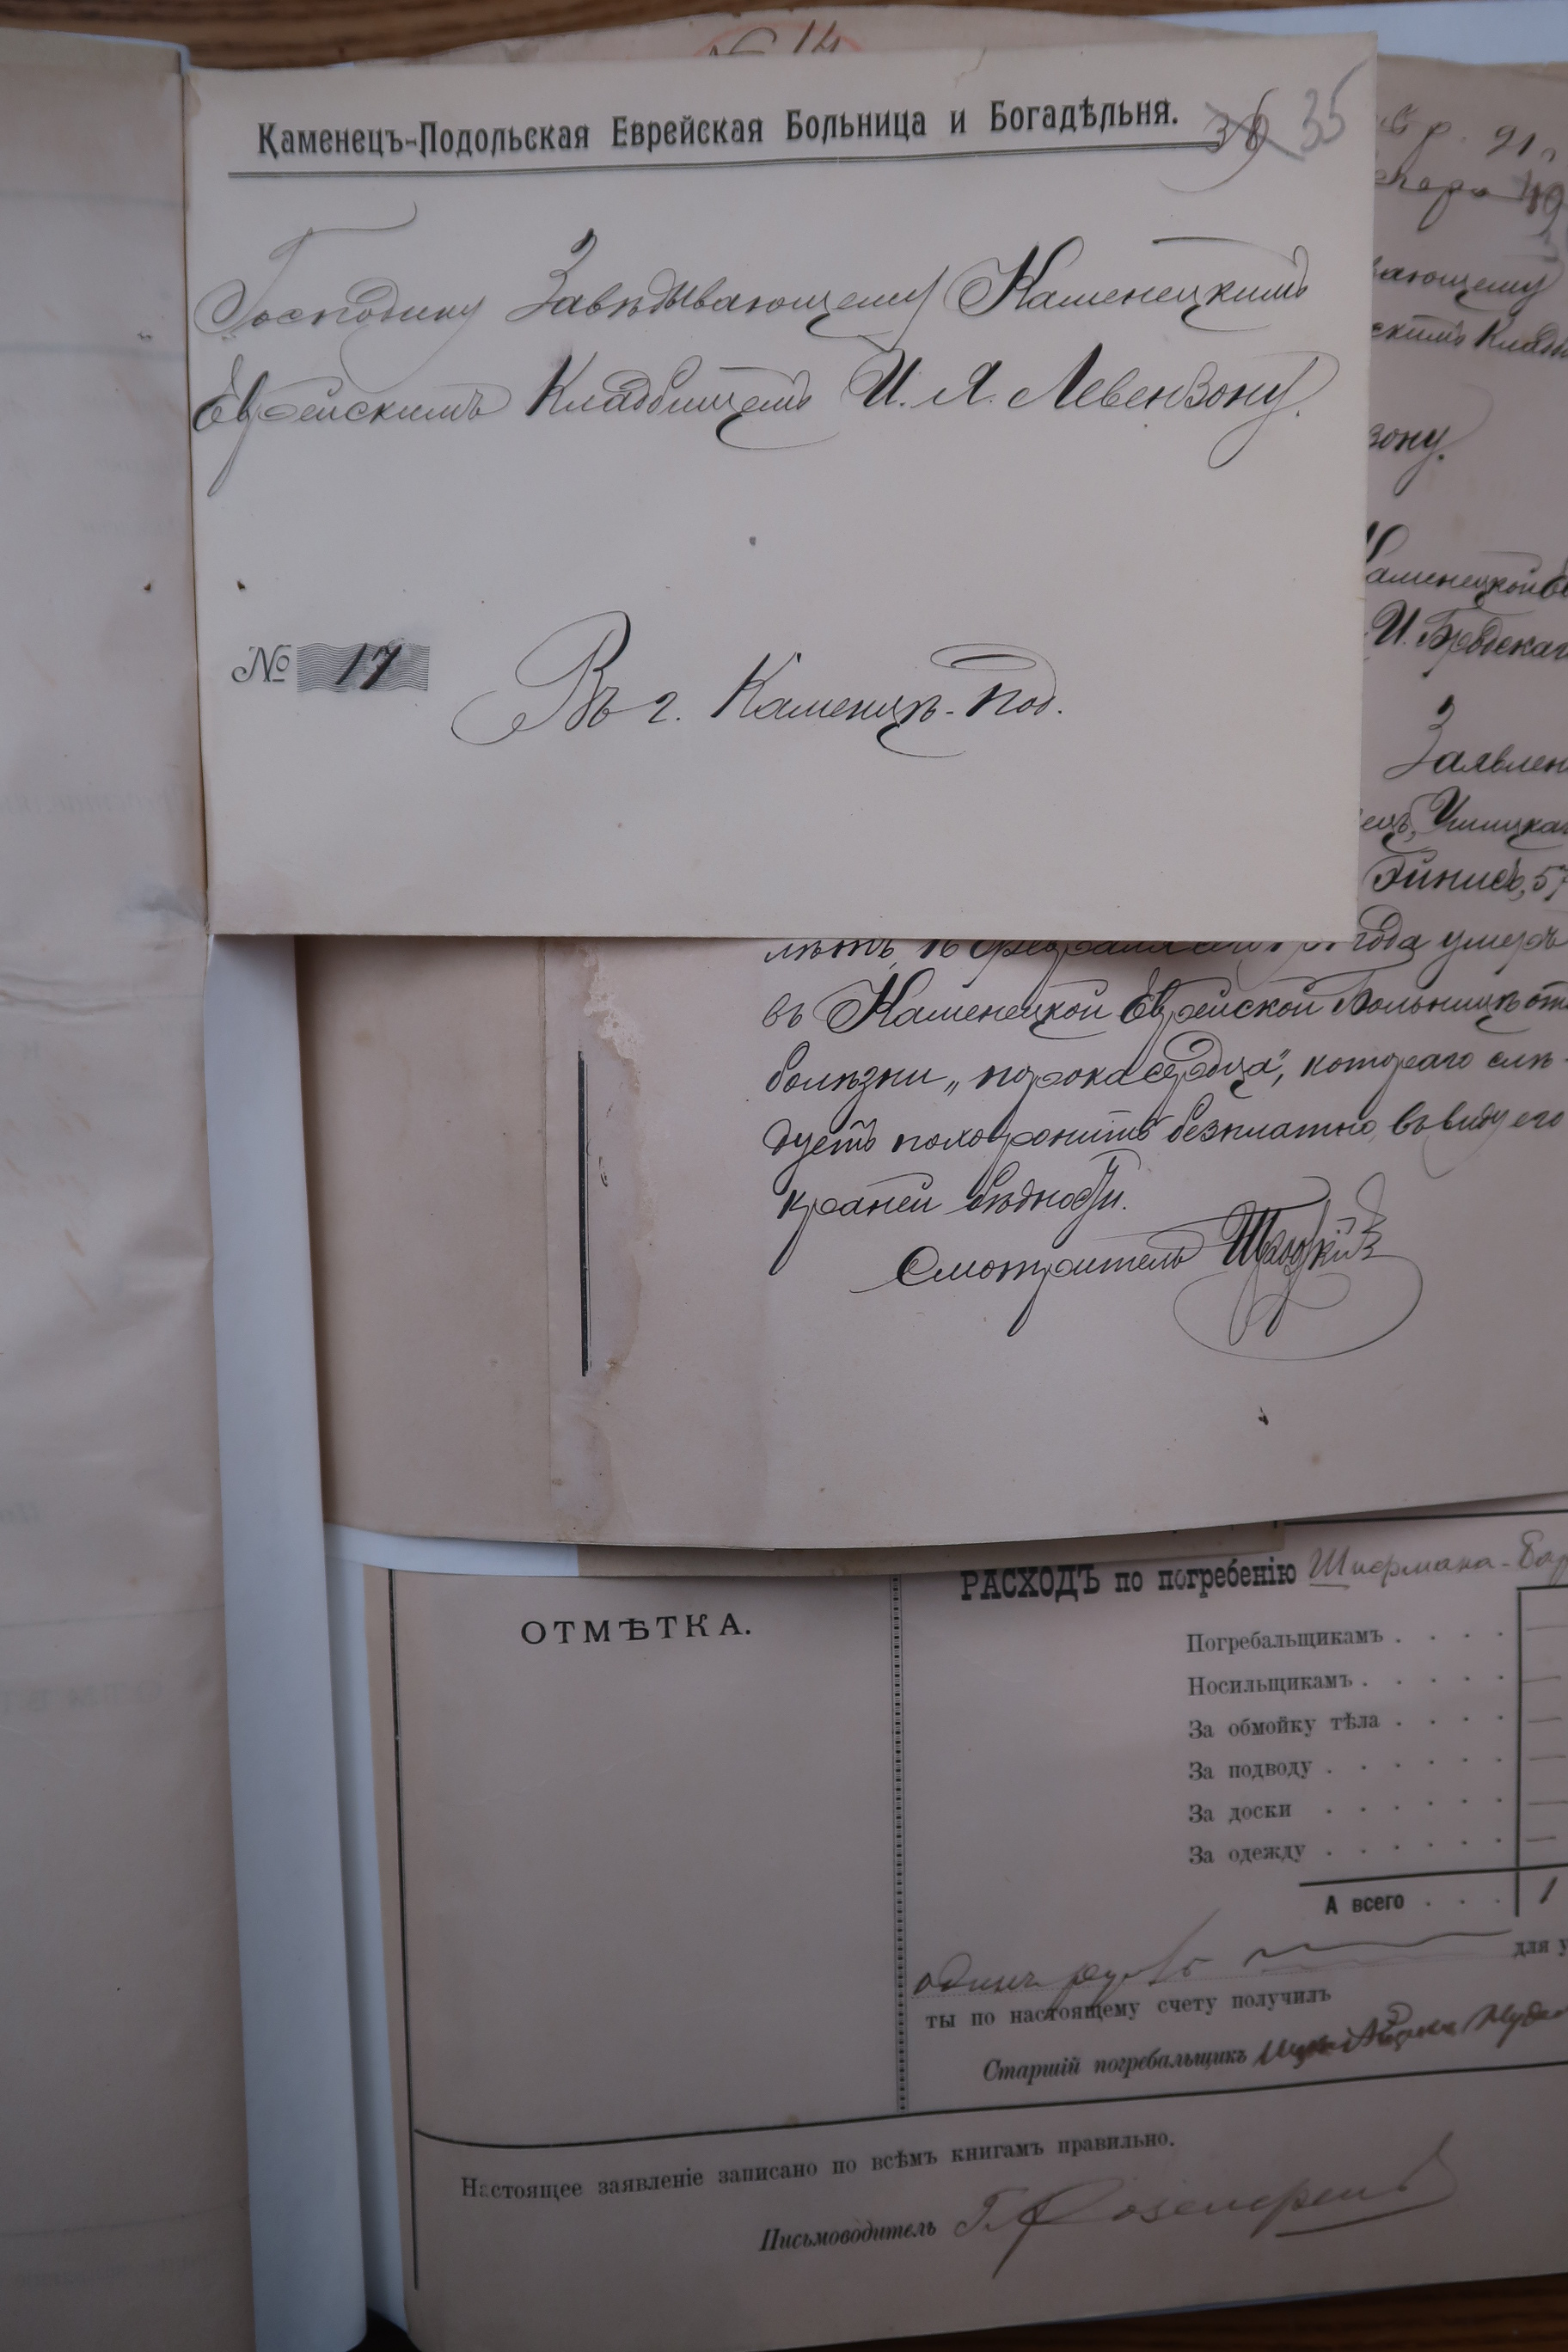 № 14
Каменецъ-Подольская Еврейская Больница и Богадѣльня.
36 35
Господину Завѣдывающему Каменецкимъ
Еврейскимъ Кладбищемъ И. Я. Левензону.
№ 17
Въ г. Каменцѣ-Под.
21
вающему
скимъ Кладб
зону.
Каменецкой Е
И. Бродскаг
Заявлен
ецъ, Ушицкаг
57
лѣтъ, 16 февраля сего года умеръ
въ Каменецкой Еврейской Больницѣ отъ
болѣзни „порока сердца", котораго слѣ-
дуетъ похоронить безплатно, въ виду его
крайней бѣдности.
Смотритель
ОТМѢТКА.
РАСХОДЪ по погребенію Шифмана-
Погребальщикамъ
Носильщикамъ
За обмойку тѣла
За подводу
За доски
За одежду
А всего 1
одинъ рубль для у
ты по настоящему счету получилъ
Старшій погребальщикъ
Настоящее заявленіе записано по всѣмъ книгамъ правильно.
Письмоводитель